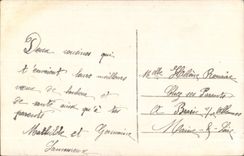 Deux cousines qui
t'envoient leurs meilleurs
vœux de bonheur et
de santé ainsi qu'à tes
parents
Mathilde et Germaine
Melle Hélène
Chez ses Parents
à
Maine & Loire